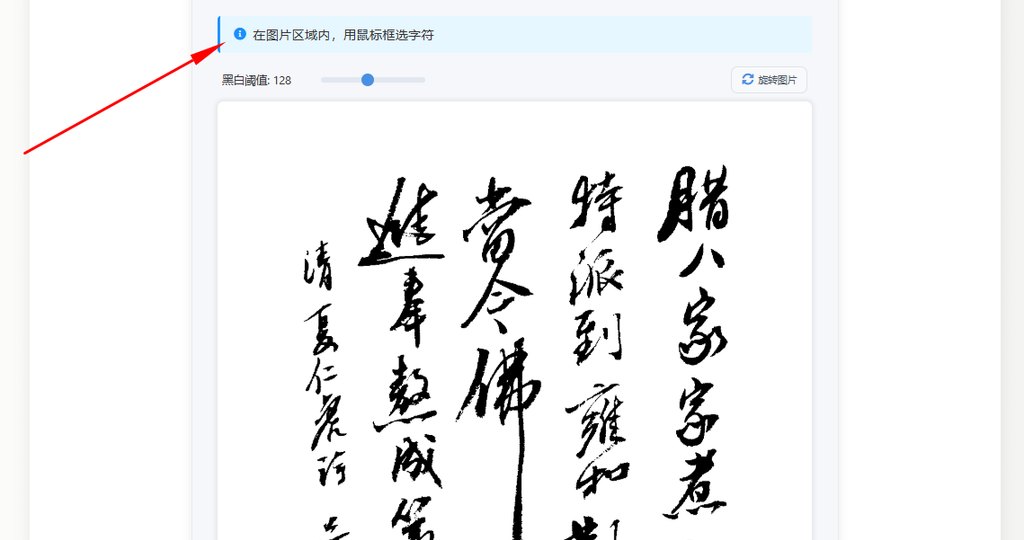 在图片区域内，用鼠标框选字符
黑白阈值: 128
旋转图片
腊八家家煮
特派到雍和
當今佛
進奉熬成第
清夏仁虎詩